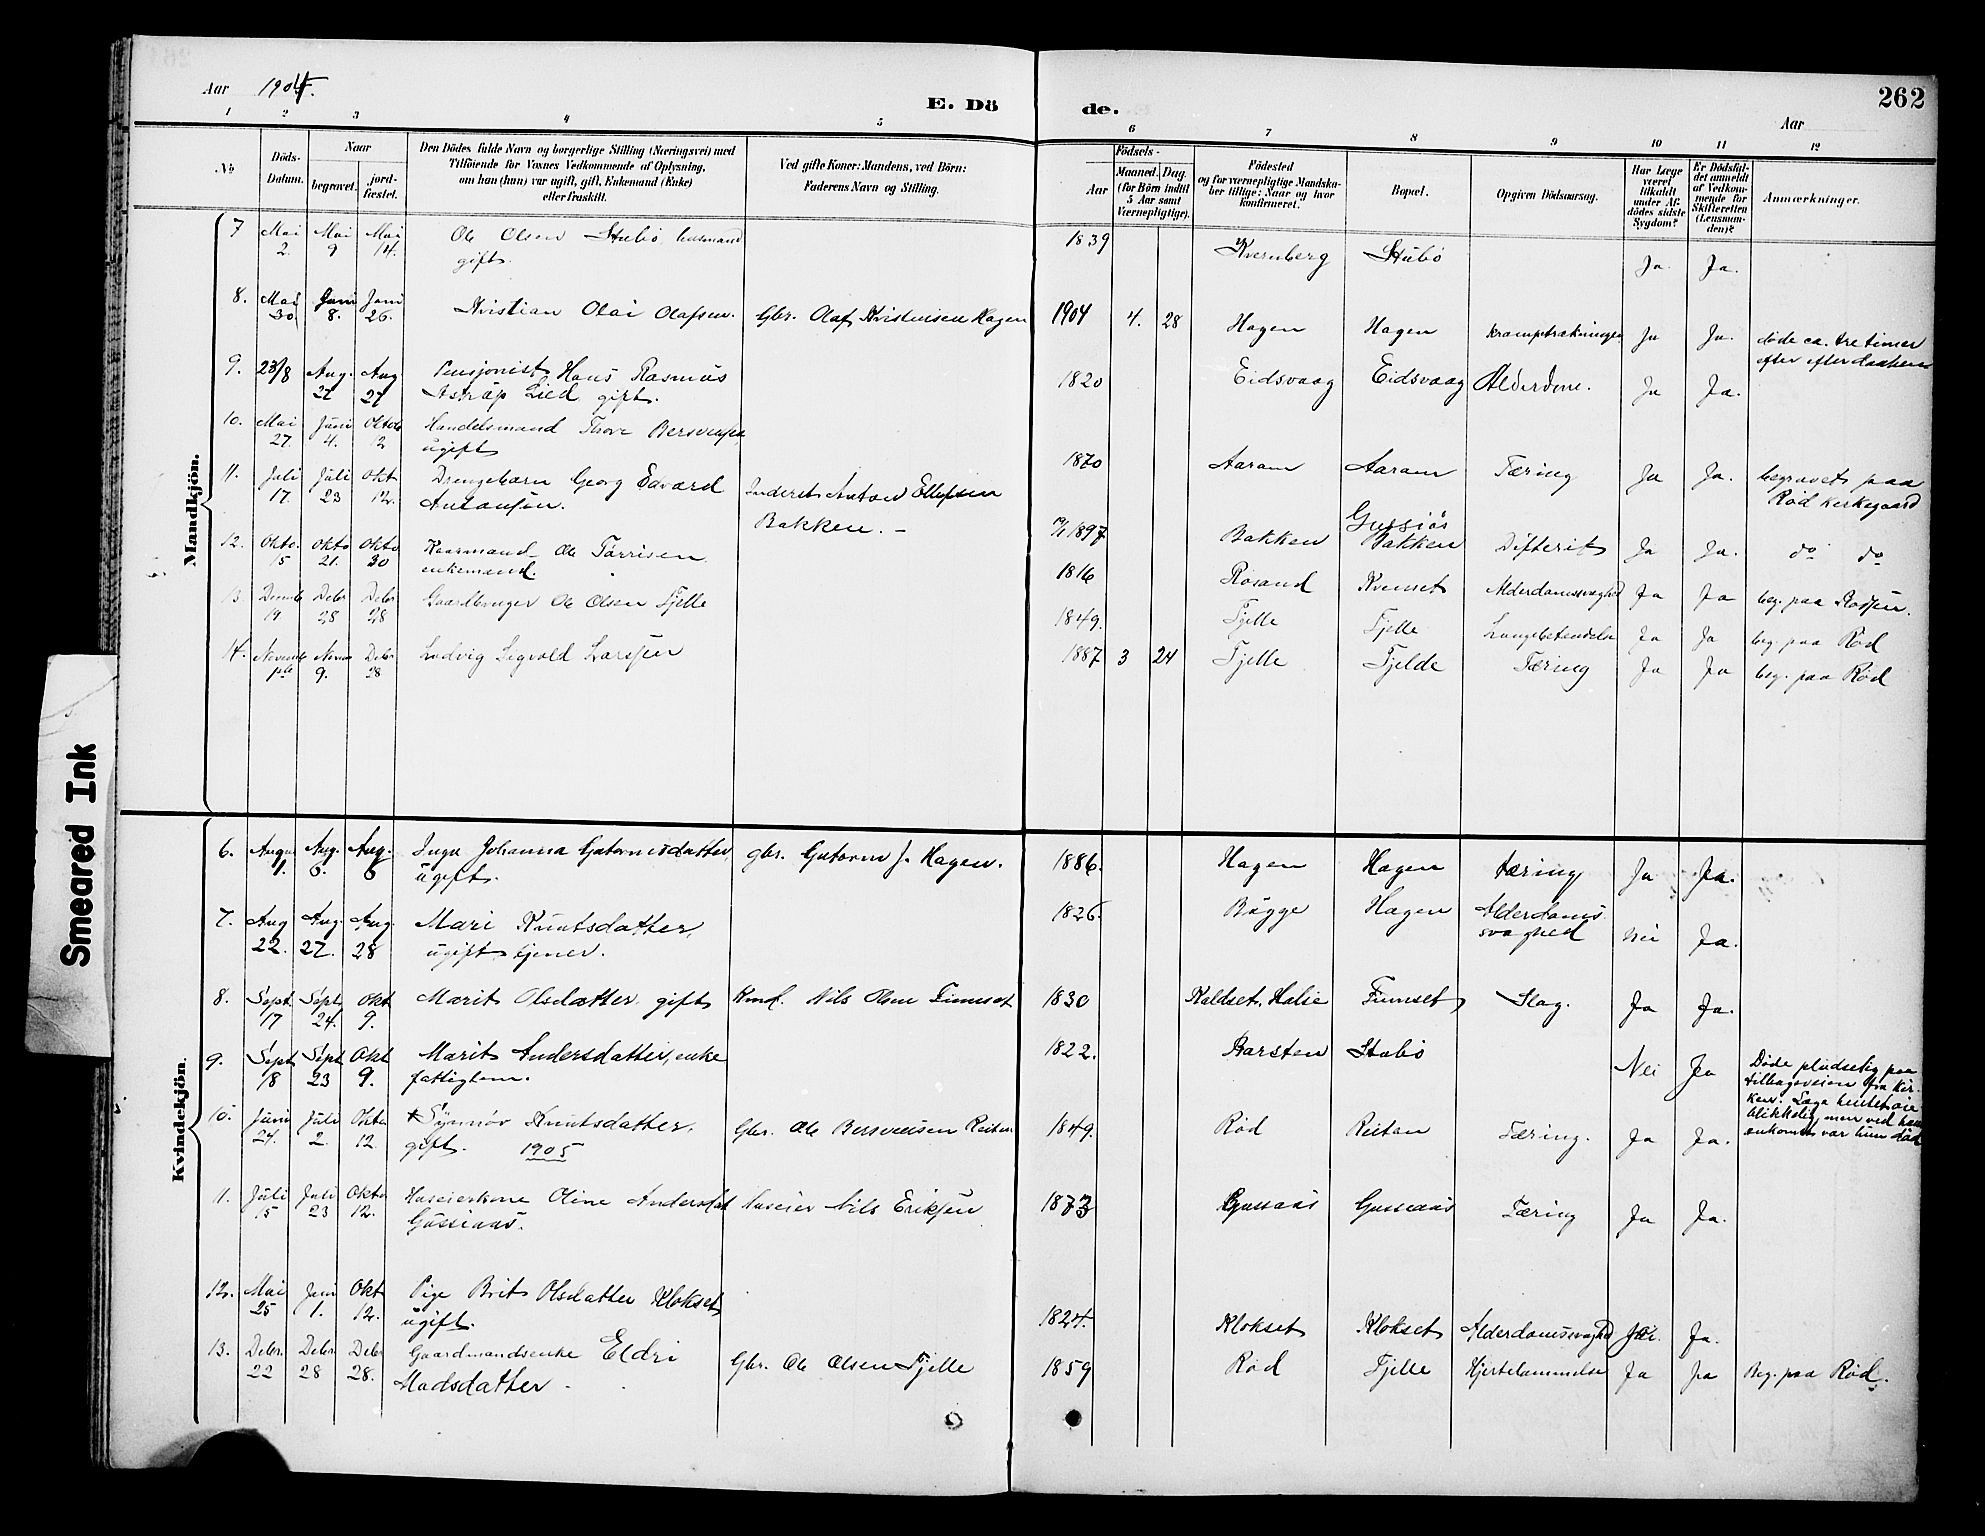 262
Aar 1904.
E. Dö
de.
Aar
1 2 3 4 5 6 7 8 9 10 11 12
No
Döds-
Datum.
Naar
begravet.
jord-
fæstet.
Den Dödes fulde Navn og borgerlige Stilling (Næringsvei) med
Tilföiende for Voxnes Vedkommende af Oplysning,
om han (hun) var ugift, gift, Enkemand (Enke)
eller fraskilt.
Ved gifte Koner: Mandens, ved Börn:
Faderens Navn og Stilling.
Födsels-
Aar
Maaned. Dag.
(for Börn indtil
5 Aar samt
Værnepligtige).
Födested
og for værnepligtige Mandska-
ber tillige: Naar og hvor
konfirmeret.
Bopæl.
Opgiven Dödsaarsag.
Har Læge
været
tilkaldt
under Af-
dödes sidste
Sygdom?
Er Dödsfal-
det anmeldt
af Vedkom-
mende for
Skifteretten
(Lensman-
den)?
Anmærkninger.
Mandkjön.
7 Mai 2. Mai 9 Mai 14. Ole Olsen Stubö, husmand 1839 Kvernberg Stubö Ja Ja.
gift.
8. Mai 30 Juni 8. Juni 26. Kristian Olai Olafsen. Gbr. Olaf Kristensen Hagen 1904 4. 28 Hagen Hagen Kramptrækninger Ja Ja. döde ca. tre timer
efter
9. 23/8 Aug. 27 Aug 27 Pensjonist Hans Rasmus 1820 Eidsvaag Eidsvaag Alderdom. Ja Ja.
Astrup Lied gift.
10. Mai 27. Juni 4. 12 Handelsmand Tore Bersvensen 1870 Aaram Aaram Tæring Ja Ja. begravet paa
ugift Rød kirkegaard
11. Juli 17. Juli 23 Okt 12. Drengebarn Georg Edvard Inderst Anton Ellefsen 1897 Bakken Gussiås
Antonsen. Bakken. - Bakken Difterit Ja Ja. do do
12. Okto. 15 Okto 21. Okto 30 Kaarmand Ole Torrisen 1816 Rosand Kvenset Alderdomssvaghed Ja Ja beg. paa
enkemand.
13. Decemb 19 Debr 28 Debr 28 Gaardbruger Ole Olsen Fjelle 1849. Fjelle Fjelle Lungebetændelse Ja Ja beg. paa Rød
14. Novemb 1ste Novem 9. Debr 28 Ludvig Sigvold Larssen 1887 3 24 Fjelle Fjelde Tæring Ja Ja beg. paa Rød
Kvindekjön.
6. August 1. Aug. 6. Aug. 6 Inga Johanna Gutormsdatter, gbr. Gutorm J. Hagen. 1886. Hagen Hagen tæring Ja Ja.
ugift.
7. Aug 22. Aug. 27. Aug. 28 Mari Knutsdatter, 1826. Bugge Hagen Alderdoms
ugift tjener. svaghed Nei Ja.
8. Sept 17 Sept 24. Okt 9. Marit Olsdatter gift Kmd. Nils Olsen Finnset 1830 Kaldset, Halse Finnset, Slag. Ja Ja.
9. Sept 18 Sept 23 Okt 9. Marit Andersdatter, enke 1822. Karsten Stubö Nei Ja Döde pludselig paa
fattiglem. tilbageveien fra kir-
ken. Læge hentet öie-
blikkelig, men ved hans
ankomst var hun död
10. Juni 24. Juli 2. Okto 12 Synnöv Knutsdatter. Gbr. Ole Bersvensen Reiten 1849. Rød Reitan Tæring. Ja Ja.
gift. 1905
11. Juli 15 Juli 23 Okto 12. Huseierkone Oline Andersdat Huseier Nils Eriksen 1873 Gussiaas Gussiaas Tæring Ja Ja.
Gussiaas.
12. Mai 25 Juni 1. Okt 12. Pige Brit Olsdatter Klokset 1824. Klokset Klokset Alderdomssvaghed Ja.
ugift.
13. Debr. 22 Debr 28 Debr 28. Gaardmandsenke Eldri Gbr. Ole Olsen Fjelle 1859 Rød Fjelle Hjertelammelse Ja Ja Beg. paa Rød.
Madsdatter.
Smeared Ink